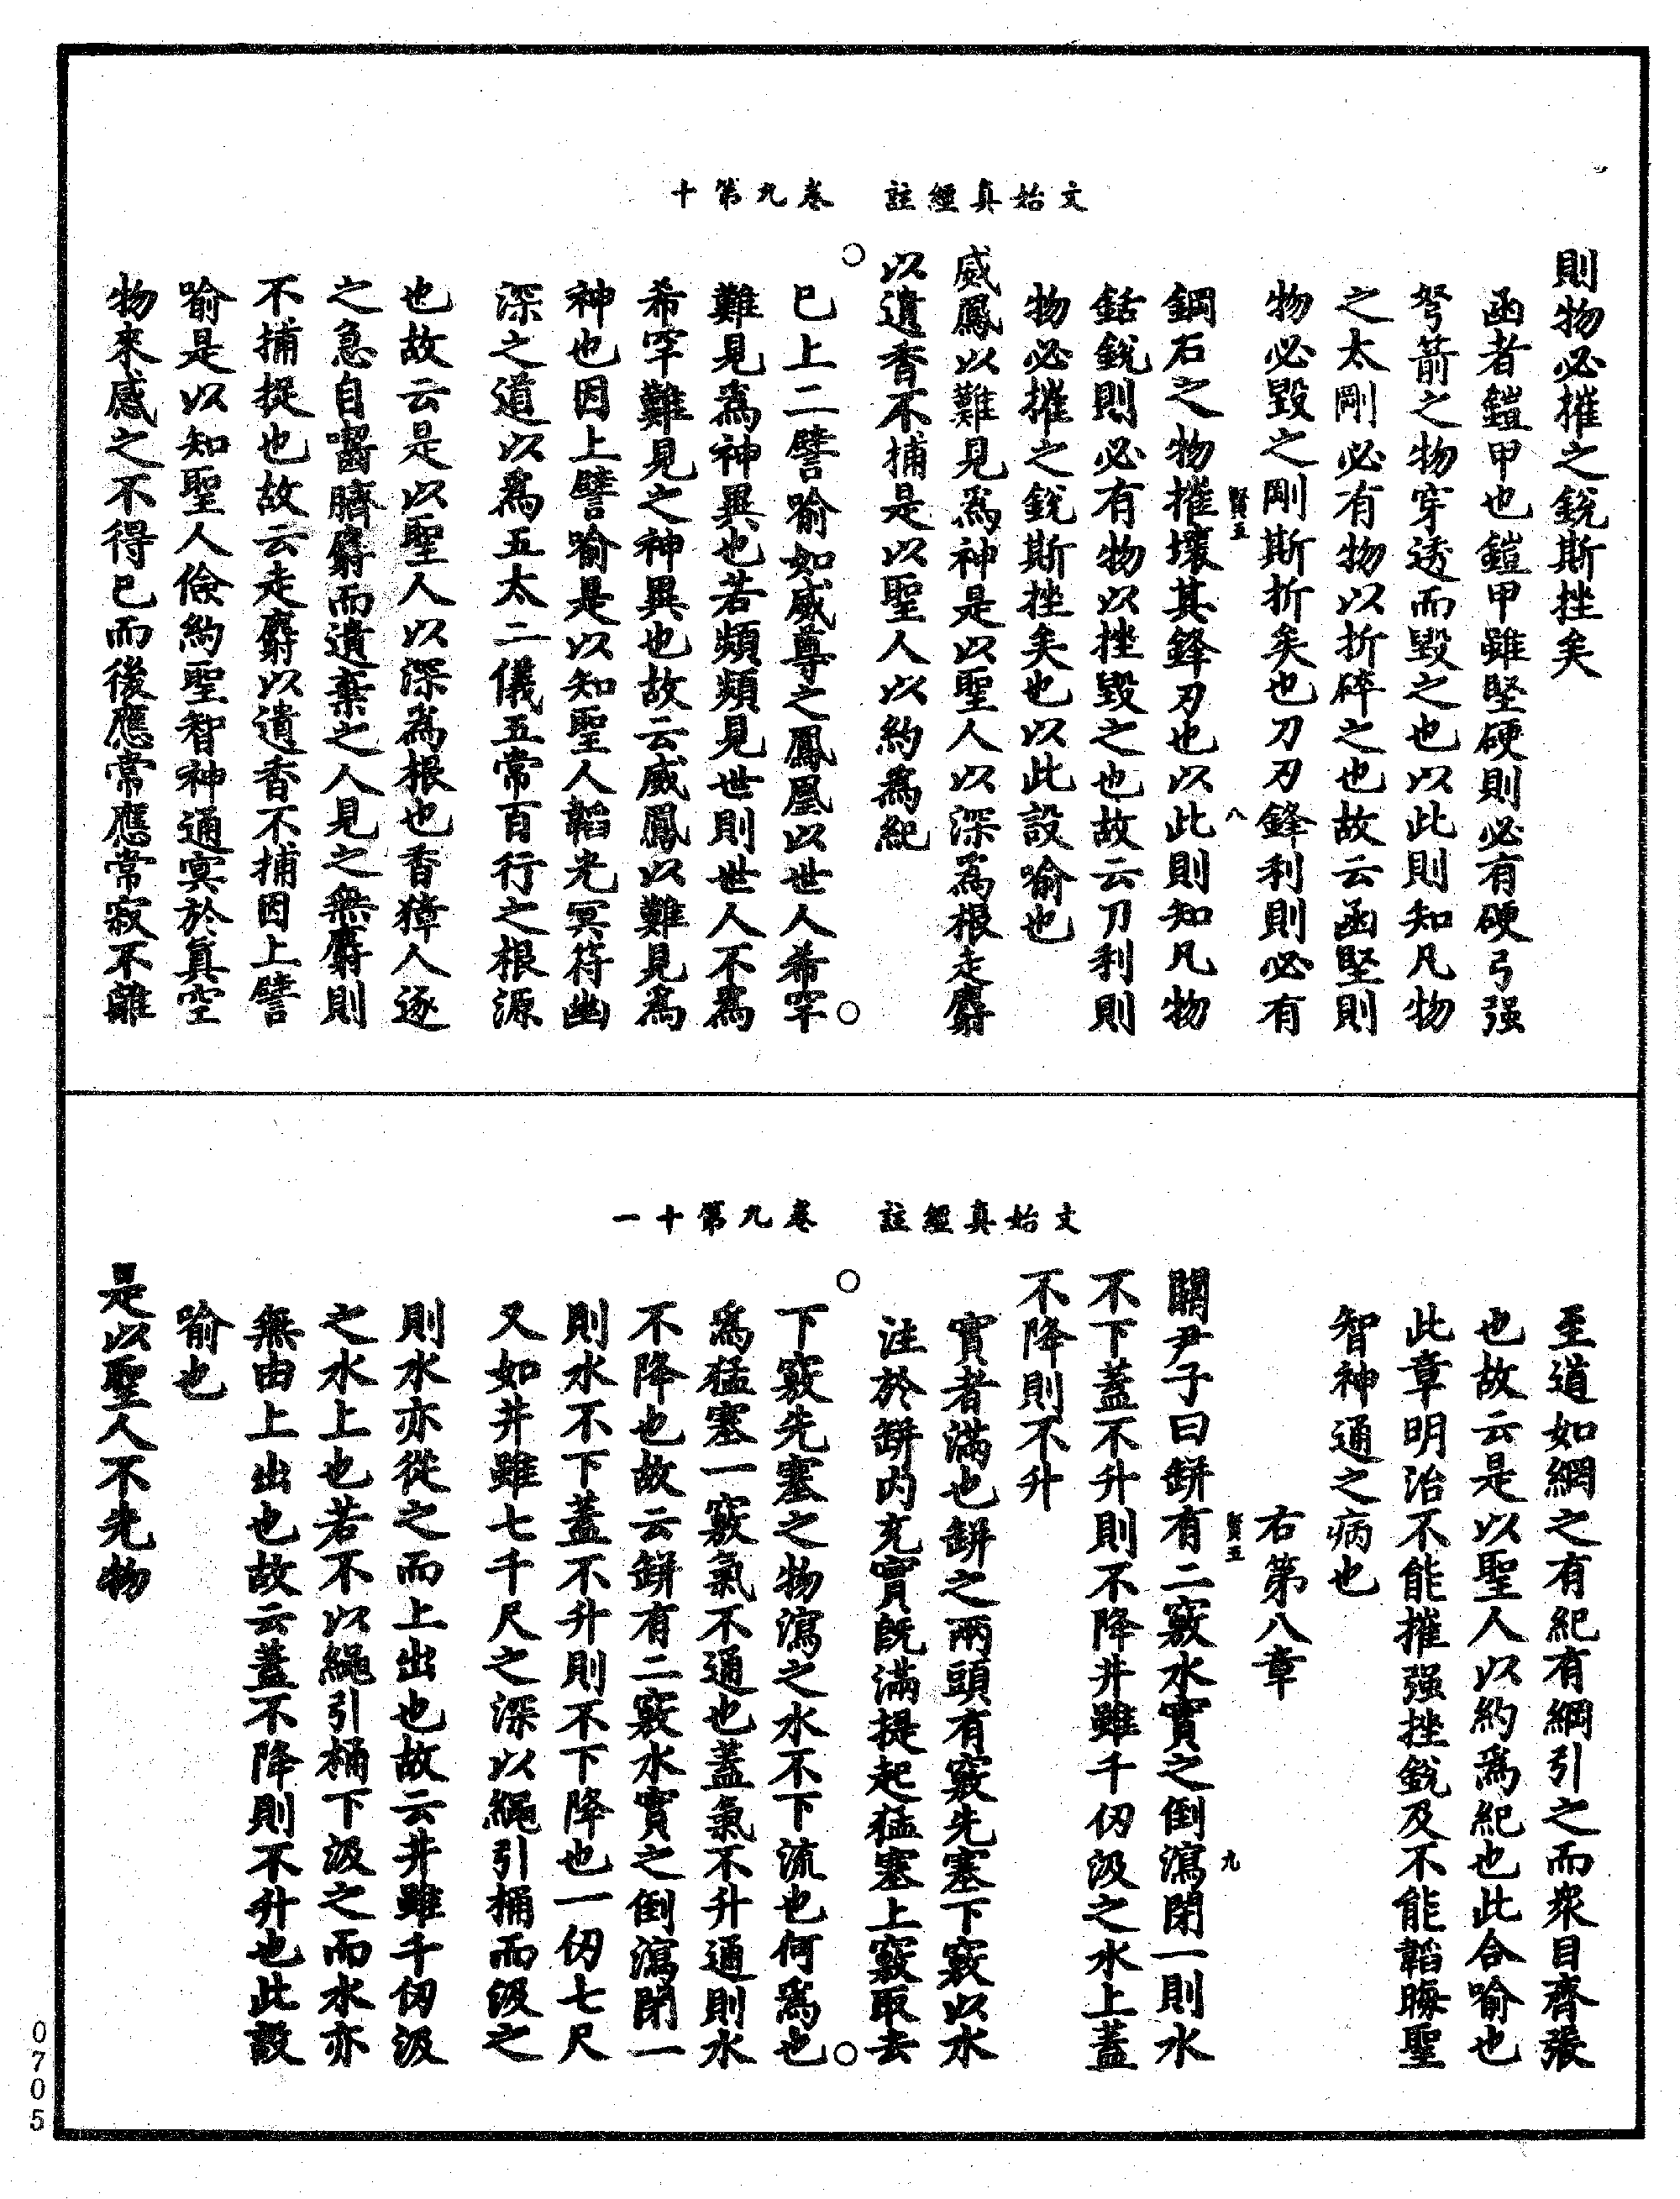 文始真經註　卷九第十
則物必摧之銳斯挫矣
函者鎧甲也鎧甲雖堅硬則必有硬弓强
弩箭之物穿透而毀之也以此則知凡物
之太剛必有物以折碎之也故云函堅則
物必毀之剛斯折矣也刀刃鋒利則必有
賢五　八
鋼石之物摧壞其鋒刃也以此則知凡物
銛銳則必有物以挫毀之也故云刀利則
物必摧之銳斯挫矣也以此設喻也
威鳳以難見為神是以聖人以深為根走麝
以遺香不捕是以聖人以約為紀
已上二譬喻如威尊之鳳凰以世人希罕
難見為神異也若頻頻見世則世人不為
希罕難見之神異也故云威鳳以難見為
神也因上譬喻是以知聖人韜光冥符幽
深之道以為五太二儀五常百行之根源
也故云是以聖人以深為根也香獐人逐
之急自嚙臍麝而遺棄之人見之無麝則
不捕捉也故云走麝以遺香不捕因上譬
喻是以知聖人儉約聖智神通冥於真空
物來感之不得已而後應常應常寂不離
文始真經註　卷九第十一
至道如網之有紀有綱引之而衆目齊張
也故云是以聖人以約為紀也此合喻也
此章明治不能摧强挫銳及不能韜晦聖
智神通之病也
右第八章
賢五　九
關尹子曰缾有二竅水實之倒瀉閉一則水
不下蓋不升則不降井雖千仞汲之水上蓋
不降則不升
實者滿也缾之兩頭有竅先塞下竅以水
注於缾內充實既滿提起猛塞上竅取去
下竅先塞之物瀉之水不下流也何為也
為猛塞一竅氣不通也蓋氣不升通則水
不降也故云缾有二竅水實之倒瀉閉一
則水不下蓋不升則不下降也一仞七尺
又如井雖七千尺之深以繩引桶而汲之
則水亦從之而上出也故云井雖千仞汲
之水上也若不以繩引桶下汲之而水亦
無由上出也故云蓋不降則不升也此設
喻也
是以聖人不先物
0705